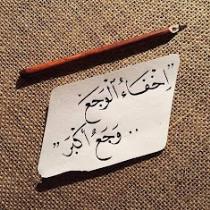 "إخفَاءُ ألوَجَع
.. وَجَعٌ أكْبَر"